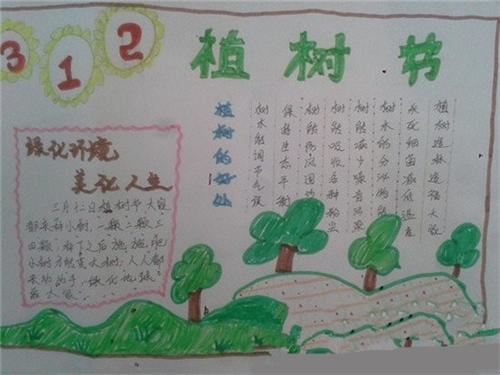 312
植树节
植树的好处
植树造林造福大家
灰死细菌减低温度
树木的分泌的能
树能减少噪音
树能吸收各种粉尘
树能防风固
保持生态平衡
树木能调节气候
绿化环境
美化人生
三月十二日植树节大家
都来种小树,一颗二颗三
四颗,种下之后施施肥
小树才能变大树,人人都
来动动手,绿化地球
为大家。